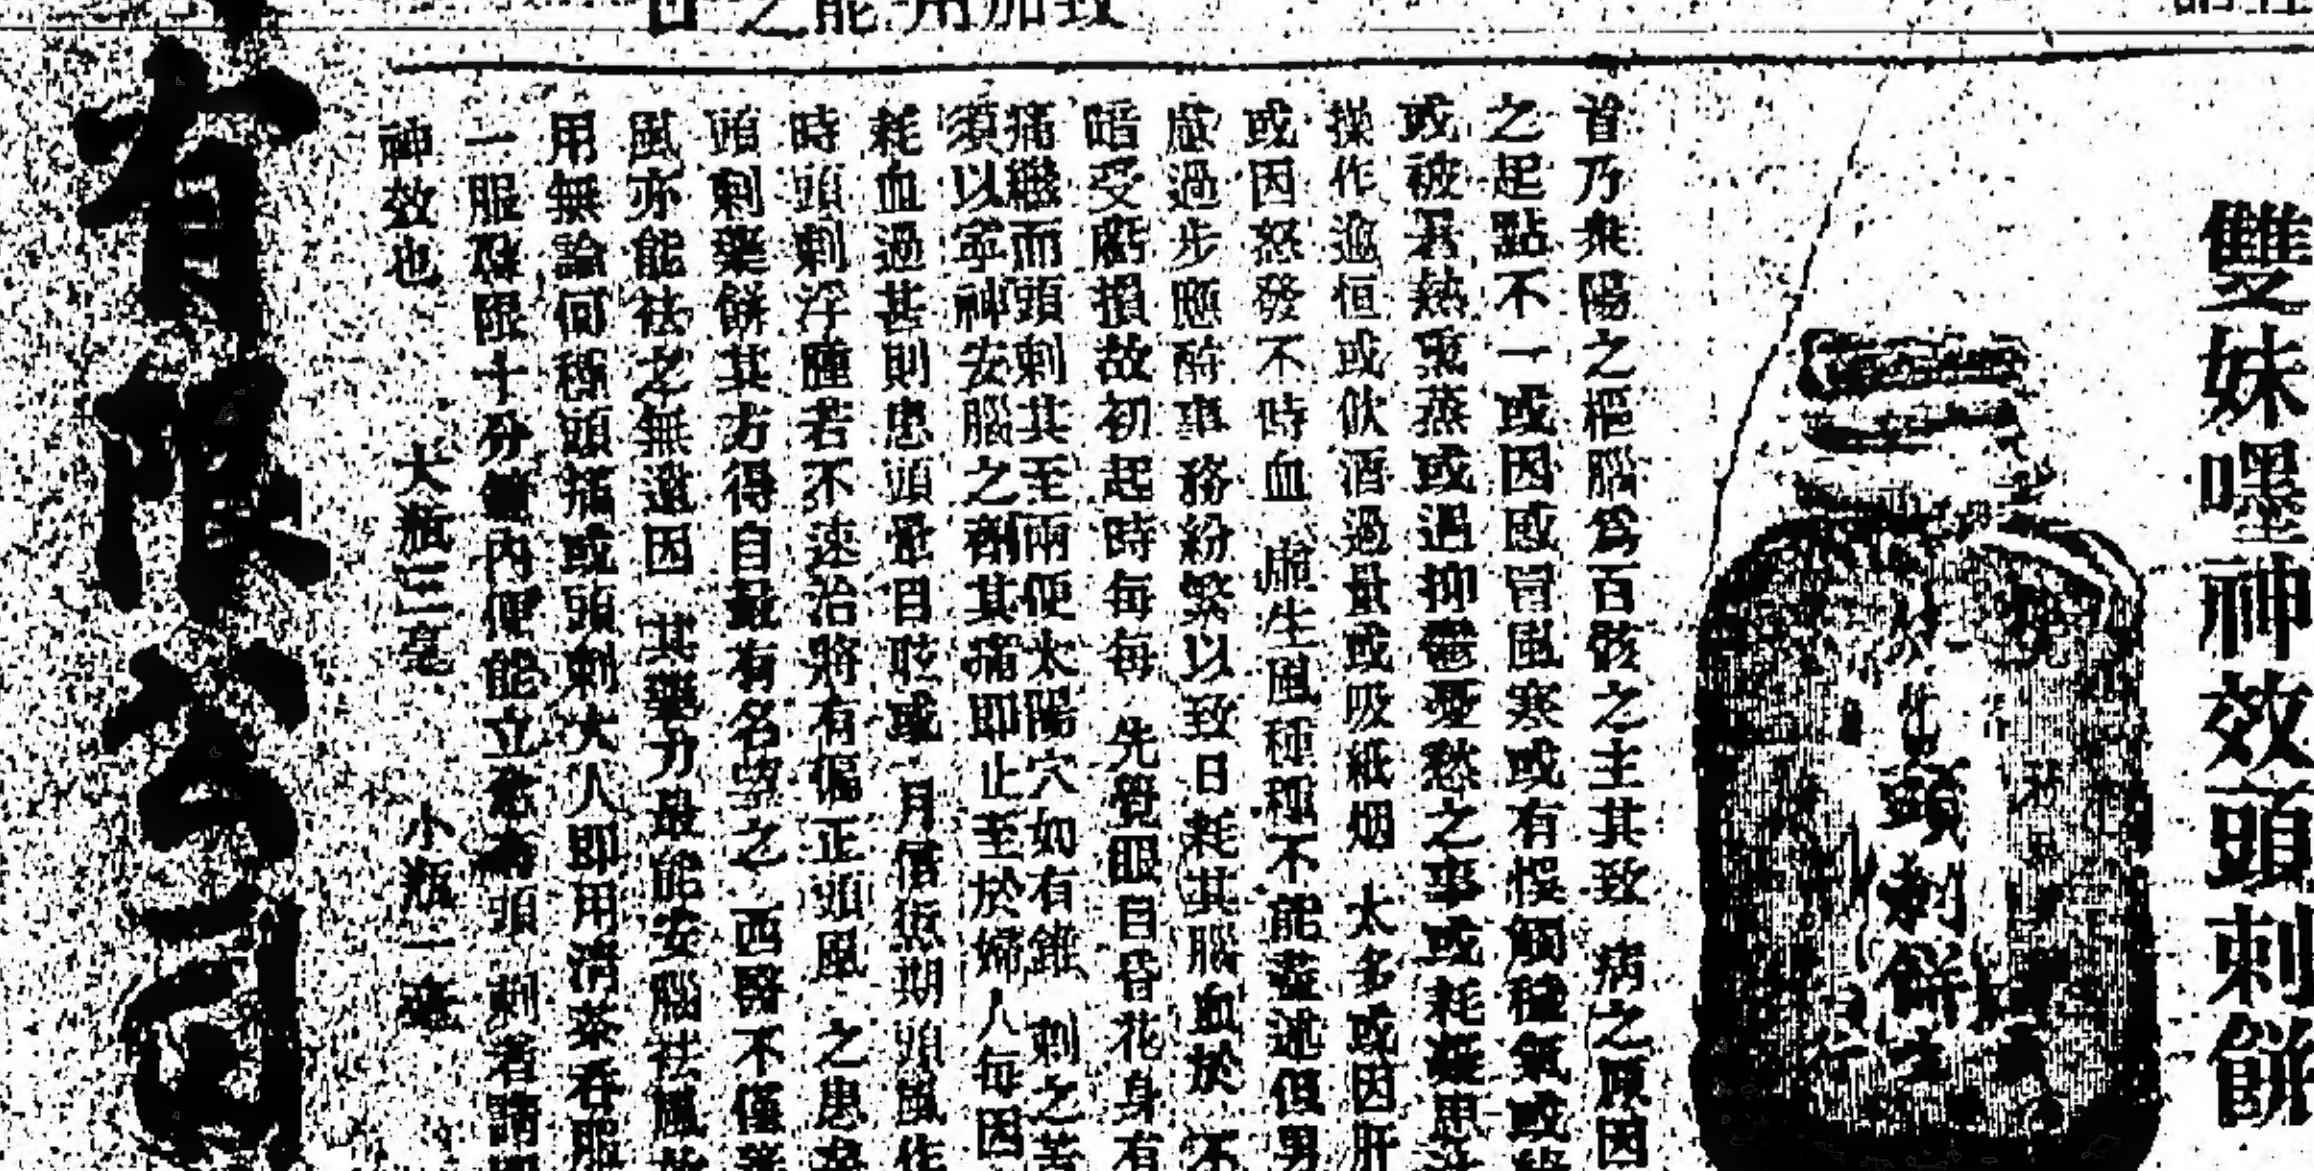 雙妹嚜神效頭刺餅
頭刺餅
首乃衆陽之樞腦爲百骸之主其致病之原因
之起點不一或因感冒風寒或有悮觸穢氣或
或被暑熱熏蒸或過抑鬱憂愁之事或耗凝思
操作逾恒或飲酒過量或吸紙烟太多或因肝
或因怒發不時血虛生風種種不能盡述但男
過步應酧事務紛繁以致日耗其腦血於不
暗受虧損故初起時每每先覺眼目昏花身有
痛繼而頭刺其至兩便太陽穴如有錐刺之苦
須以寧神安腦之劑其痛即止至於婦人每因
耗血過甚則患頭暈目眩或月信依期頭風作
時頭刺浮腫若不速治將有偏正頭風之患
頭刺藥餅其方得自最有名望之西醫不僅
風亦能祛之無遺因其藥力最能安腦祛風
用無論何種頭痛或頭刺大人即用清茶吞服
一服限十分鐘內便能立頭刺者請
神效也 大瓶三毫 小瓶一毫
有限公司
之能用加致